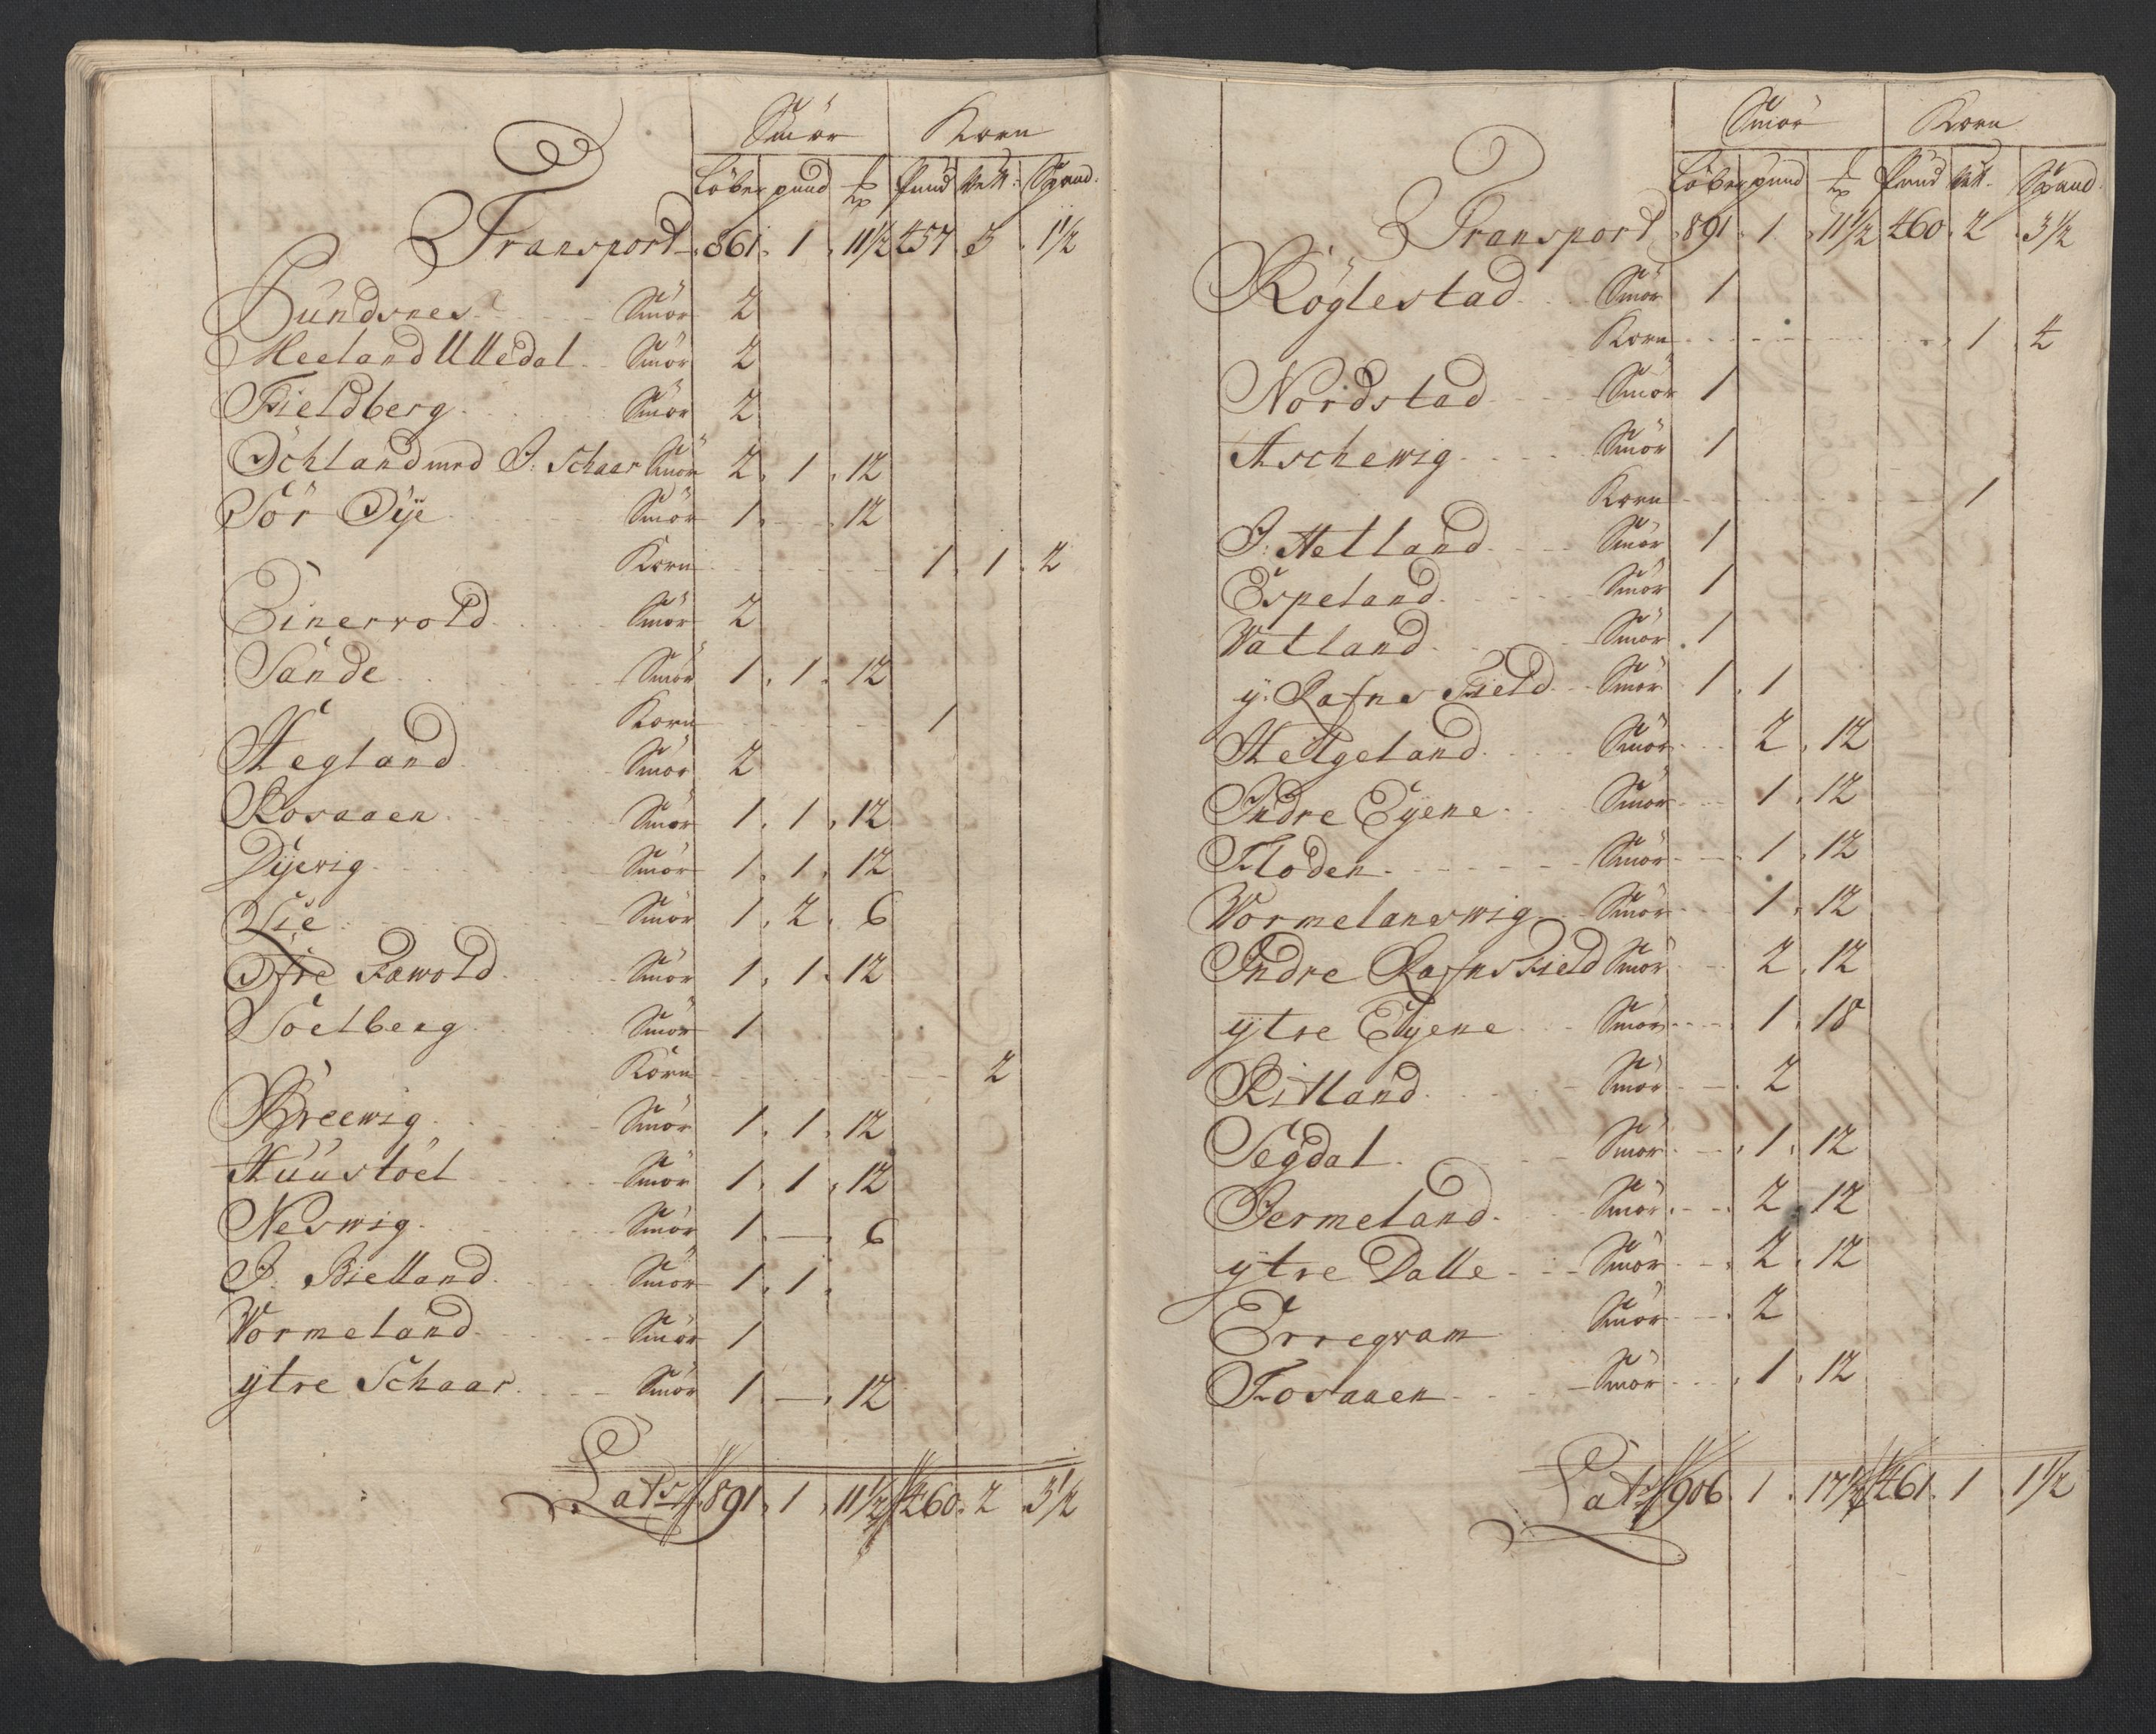 Smör Korn
Löber pund ℔ Pund Vett: Spand.
Transport 861. 1. 11½ 457. 3. 1½
Hundsnes Smör 2
Meeland Ulledal Smör 2
Fieldberg Smör 2
Öchland med I: Schaar Smör 2. 1. 12
Sör Öije Smör 1. — . 12
Korn 1. 1. 2
Einervold Smör 2
Sande Smör 1. 1. 12
Korn 1
Hegland Smör 2
Rosaaen Smör 1. 1. 12
Dijevig Smör 1. 1. 12
Lie Smör 1. 2. 6
Öfre Rawold Smör 1. 1. 12
Soelberg Smör 1
Korn 2
Breewig Smör 1. 1. 12
Huustoel Smör 1. 1. 12
Neswig Smör 1. — . 6
I. Bielland Smör 1. 1.
Vormeland Smör 1
ÿtre Schaar Smör 1. — . 12
Lats 891. 1. 11½ 460. 2. 3½
Smör Korn
Löber pund ℔ Pund Vett. Spand.
Transport 891. 1. 11½ 460. 2. 3½
Röglestad Smör 1
Korn 1. 4
Nordstad Smör 1
Aschewig Smör 1
Korn 1
I: Helland Smör 1
Espeland Smör 1
Vatland Smör 1
ÿ. Rafns Field Smör 1. 1
Helgeland Smör 2. 12
Indre Eÿene Smör 1. 12
Floden Smör 1. 12
Vormelanswig Smör 1. 12
Indre Rafns Field Smör 2. 12
ÿtre Eÿene Smör 1. 18
Ritland Smör 2
Segdal Smör 1. 12
Jermeland Smör 2. 12
ÿtre Dalle Smör 2. 12
Erregvam Smör 2
Fosaaen Smör 1. 12
Lats 906. 1. 17½ 461. 1. 1½